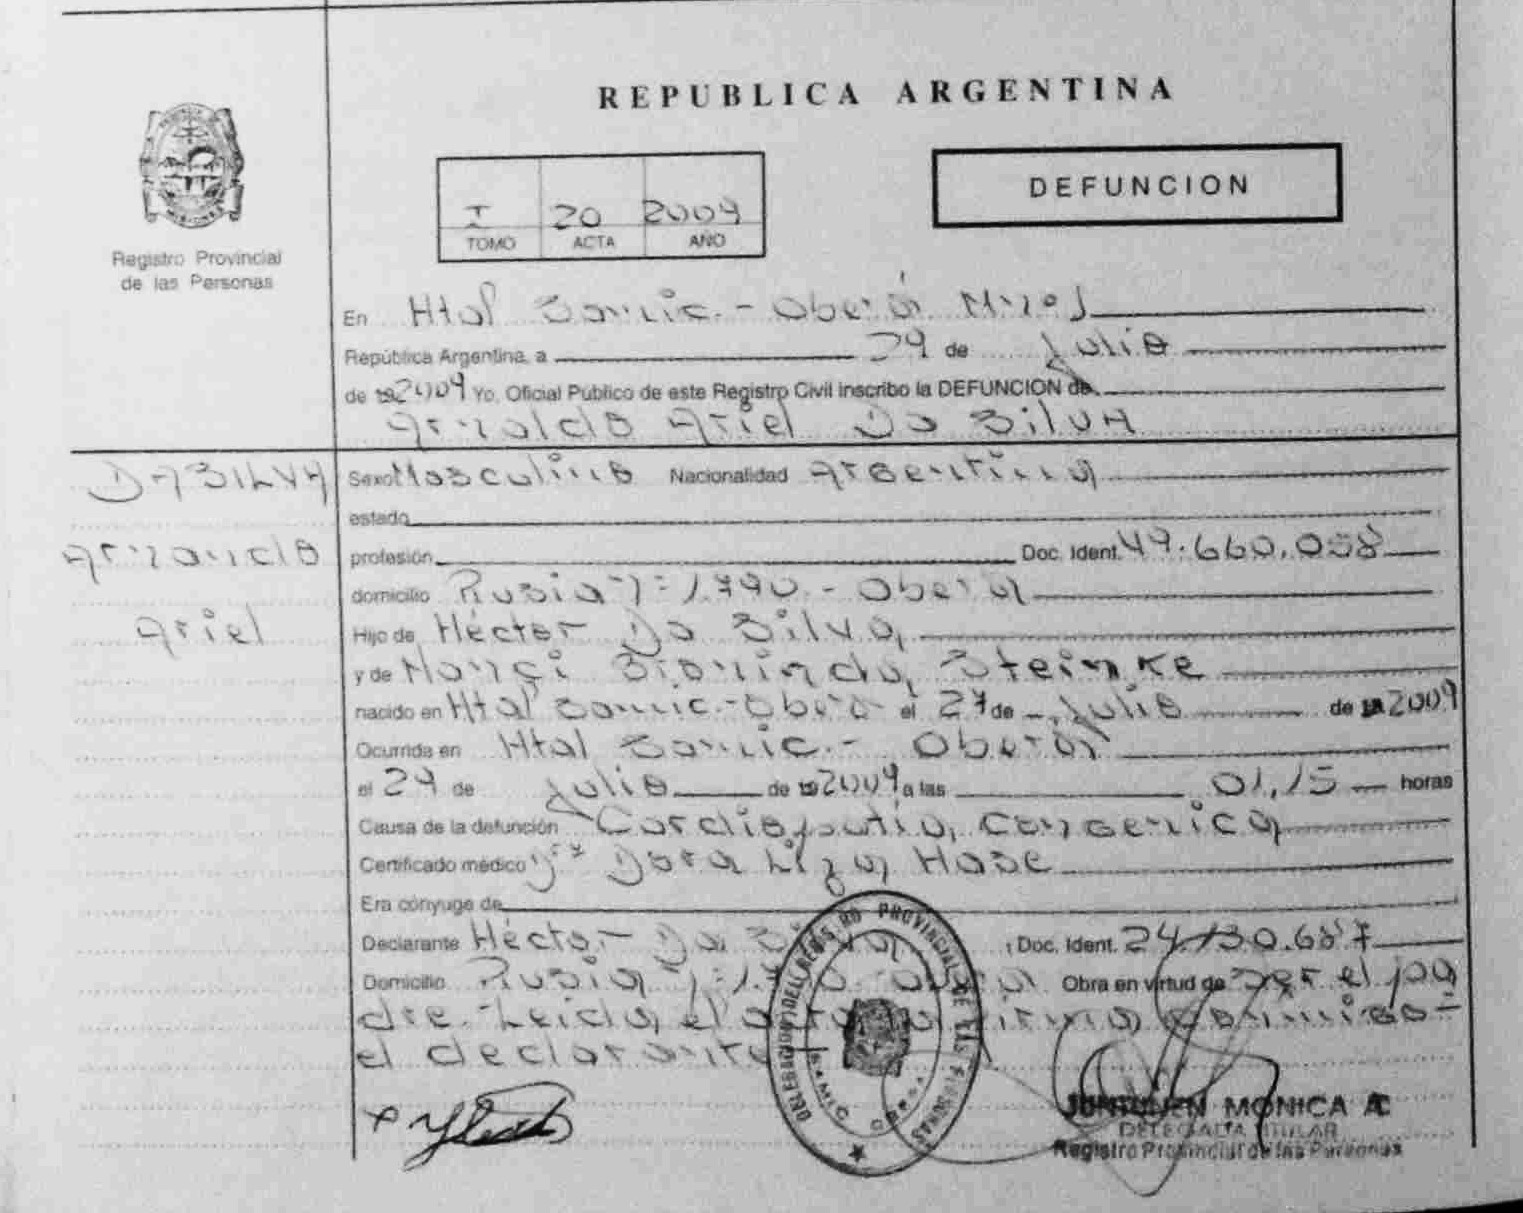 REPUBLICA ARGENTINA
DEFUNCION
I 20 2009
TOMO ACTA AÑO
Registro Provincial
de las Personas
En Htal Samic.- Oberá Mnes
República Argentina, a 29 de Julio
de 2009 Yo, Oficial Público de este Registro Civil inscribo la DEFUNCION de
Ariel Da Silva
DA SILVA
Ariel
Sexo Masculino Nacionalidad Argentina
estado
profesión Doc. Ident. 49.660.058
domicilio Rusia - Oberá
Hijo de Héctor Da Silva
y de Steinke
nacido en Htal Samic.- Oberá el 27 de Julio de 2009
Ocurrida en Htal Samic.- Oberá
el 29 de Julio de 2009 a las 01,15 horas
Causa de la defunción Cardiopatía Congenica
Certificado médico Dra Dora Liza Hase
Era cónyuge de
Declarante Héctor Da Silva Doc. Ident. 24.130.687
Domicilio Rusia Oberá Obra en virtud de ser el pa
dre.- Leida el acta la firma conmigo-
el declarante
DELEGACION DEL REGISTRO PROVINCIAL DE LAS PERSONAS
SAMIC OBERA
MONICA A
DELEGADA TITULAR
Registro Provincial de las Personas